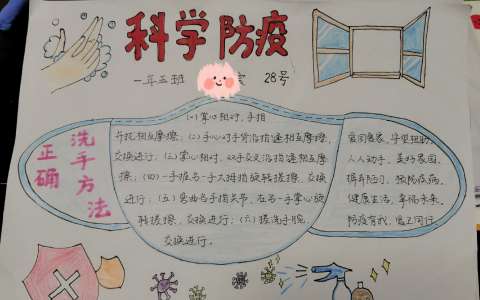 科学防疫
一年五班
宝 28号
正确
洗手方法
(一)掌心相对,手指
并拢相互摩擦;(二)手心对手背沿指缝相互摩擦,
交换进行;(三)掌心相对,双手交叉沿指缝相互摩
擦;(四)一手握另一手大拇指旋转搓擦,交换
进行;(五)弯曲各手指关节,在另一手掌心旋
转搓擦,交换进行;(六)搓洗手腕,
交换进行。
爱国爱家,守望相助,
人人动手,美好家园,
摒弃陋习,预防疾病,
健康生活,幸福未来。
防疫有我,爱卫同行